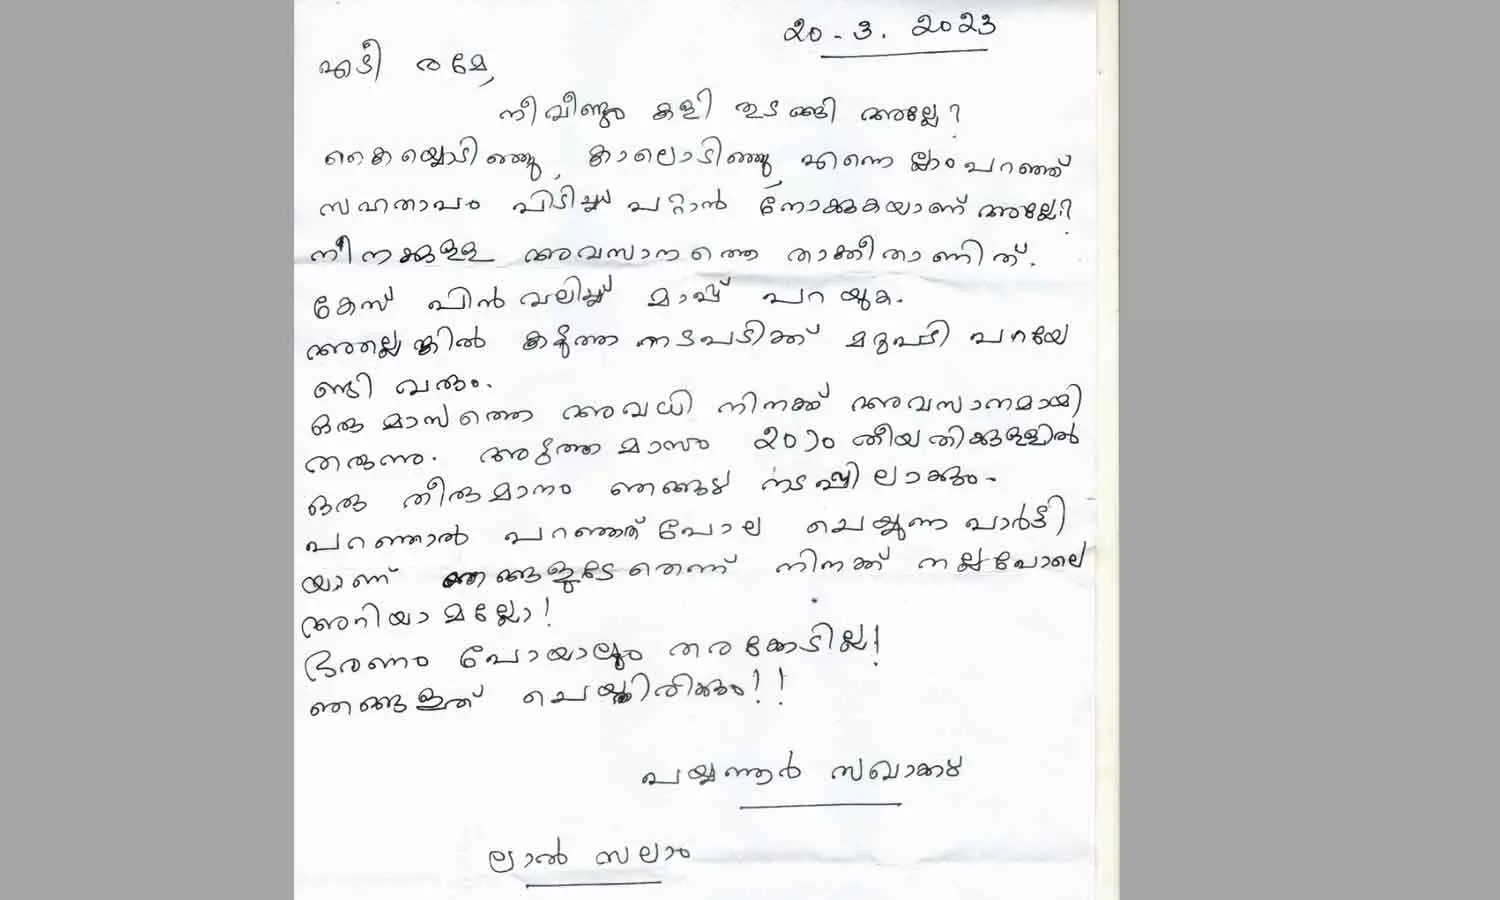 20-3. 2023
എടീ രമേ,
നീ വീണ്ടും കളി തുടങ്ങി അല്ലേ?
കൈയ്യൊടിഞ്ഞു, കാലൊടിഞ്ഞു, എന്നെല്ലാം പറഞ്ഞ്
സഹതാപം പിടിച്ചു പറ്റാൻ നോക്കുകയാണ് അല്ലേ?
നിനക്കുള്ള അവസാനത്തെ താക്കീതാണിത്.
കേസ് പിൻവലിച്ച് മാപ്പ് പറയുക.
അല്ലെങ്കിൽ കടുത്ത നടപടിക്ക് മറുപടി പറയേ
ണ്ടി വരും.
ഒരു മാസത്തെ അവധി നിനക്ക് അവസാനമായി
തരുന്നു. അടുത്ത മാസം 20ാം തീയതിക്കുള്ളിൽ
ഒരു തീരുമാനം ഞങ്ങൾ നടപ്പിലാക്കും.
പറഞ്ഞാൽ പറഞ്ഞത് പോല ചെയ്യുന്ന പാർട്ടി
യാണ് ഞങ്ങളുടേതെന്ന് നിനക്ക് നല്ലപോലെ
അറിയാമല്ലോ!
ഭരണം പോയാലും തരക്കേടില്ല!
ഞങ്ങളിത് ചെയ്തിരിക്കും!!
പയ്യന്നൂർ സഖാക്കൾ
ലാൽ സലാം